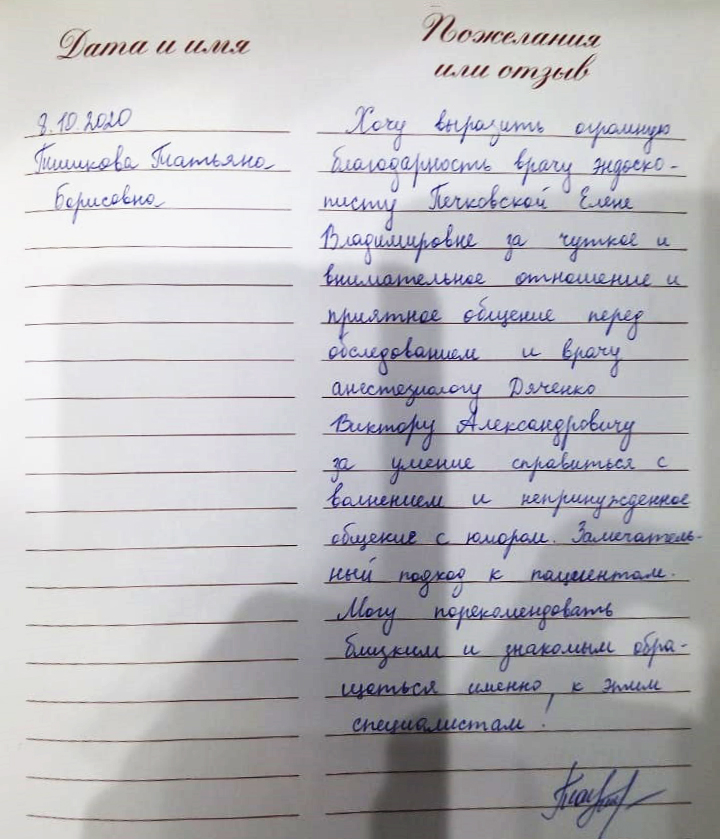 Дата и имя
Пожелания
или отзыв
8.10.2020
Тишкова Татьяна
Борисовна
Хочу выразить огромную
благодарность врачу эндоско-
писту Печковской Елене
Владимировне за чуткое и
внимательное отношение и
приятное общение перед
обследованием и врачу
анестезиологу Дяченко
Виктору Александровичу
за умение справиться с
волнением и непринужденное
общение с юмором. Замечатель-
ный подход к пациентам.
Могу порекомендовать
близким и знакомым обра-
щаться именно к этим
специалистам!